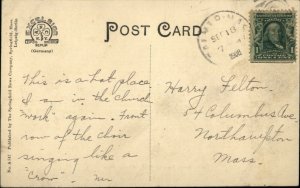 POST CARD
EXCELSIOR
BERLIN
(Germany)
No. A 547 Published by The Springfield News Company, Springfield, Mass.
Leipzig-Berlin
SEP 18
7
1908
This is a hot place
I am in the church
"work" again. Front
row of the choir
singing like a
"Crow".
Harry Felton.
54 Columbus Ave
Northampton
Mass.